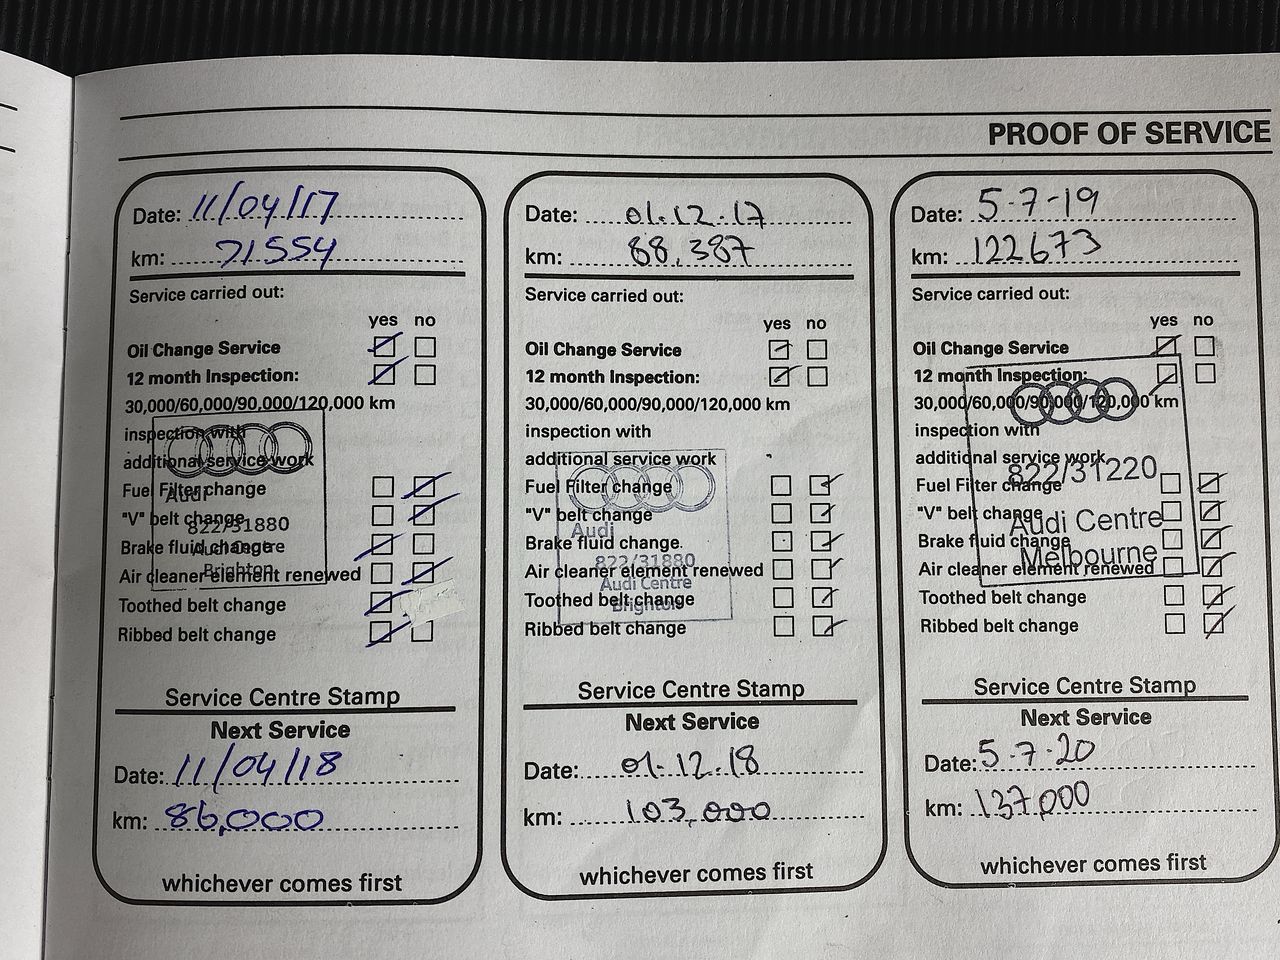 PROOF OF SERVICE
Date: 11/04/17
km: 71554
Service carried out:
yes no
Oil Change Service
12 month Inspection:
30,000/60,000/90,000/120,000 km
inspection with
additional service work
Fuel Filter change
"V" belt change
Brake fluid change
Air cleaner element renewed
Toothed belt change
Ribbed belt change
Audi
822/31880
Audi Centre
Brighton
Service Centre Stamp
Next Service
Date: 11/04/18
km: 86,000
whichever comes first
Date: 01.12.17
km: 88,387
Service carried out:
yes no
Oil Change Service
12 month Inspection:
30,000/60,000/90,000/120,000 km
inspection with
additional service work
Fuel Filter change
"V" belt change
Brake fluid change.
Air cleaner element renewed
Toothed belt change
Ribbed belt change
Audi
822/31880
Audi Centre
Brighton
Service Centre Stamp
Next Service
Date: 01.12.18
km: 103,000
whichever comes first
Date: 5-7-19
km: 122673
Service carried out:
yes no
Oil Change Service
12 month Inspection:
30,000/60,000/90,000/120,000 km
inspection with
additional service work
Fuel Filter change
"V" belt change
Brake fluid change
Air cleaner element renewed
Toothed belt change
Ribbed belt change
822/31220
Audi Centre
Melbourne
Service Centre Stamp
Next Service
Date: 5-7-20
km: 137,000
whichever comes first